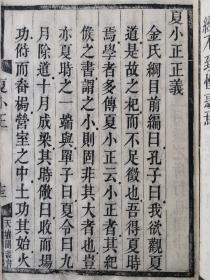 夏小正正義
金氏綱目前編曰孔子曰我欲觀夏
道是故之杞而不足徵也吾得夏時
焉學者多傳夏小正云小正者其紀
候之書謂之小則固非其大者也豈
亦夏時之一端與單子曰夏令曰九
月除道十月成梁其時儆曰收而場
功偫而畚挶營室之中土功其始火
夏小正
天壤閣叢書